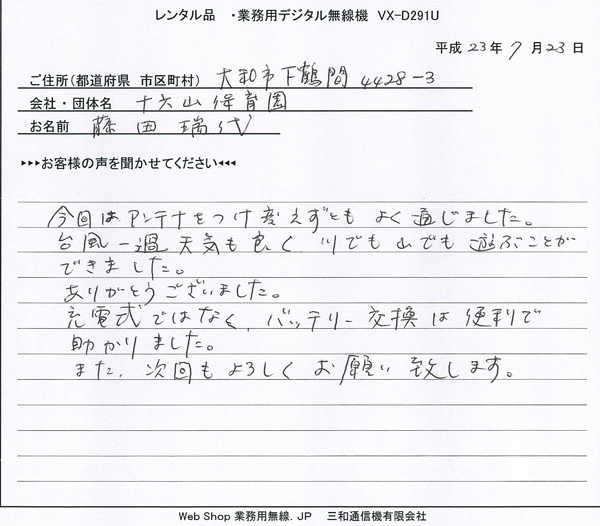 レンタル品　・業務用デジタル無線機　VX-D291U
平成 23年 7 月 23日
ご住所（都道府県　市区町村） 大和市下鶴間 4428-3
会社・団体名 十六山保育園
お名前 藤田 瑞代
▸▸▸お客様の声を聞かせてください◂◂◂
今回はアンテナをつけ変えずともよく通じました。
台風一過天気も良く、川でも山でも遊ぶことが
できました。
ありがとうございました。
充電式ではなく、バッテリー交換は便利で
助かりました。
また、次回もよろしくお願い致します。
Web Shop 業務用無線．JP　三和通信機有限会社